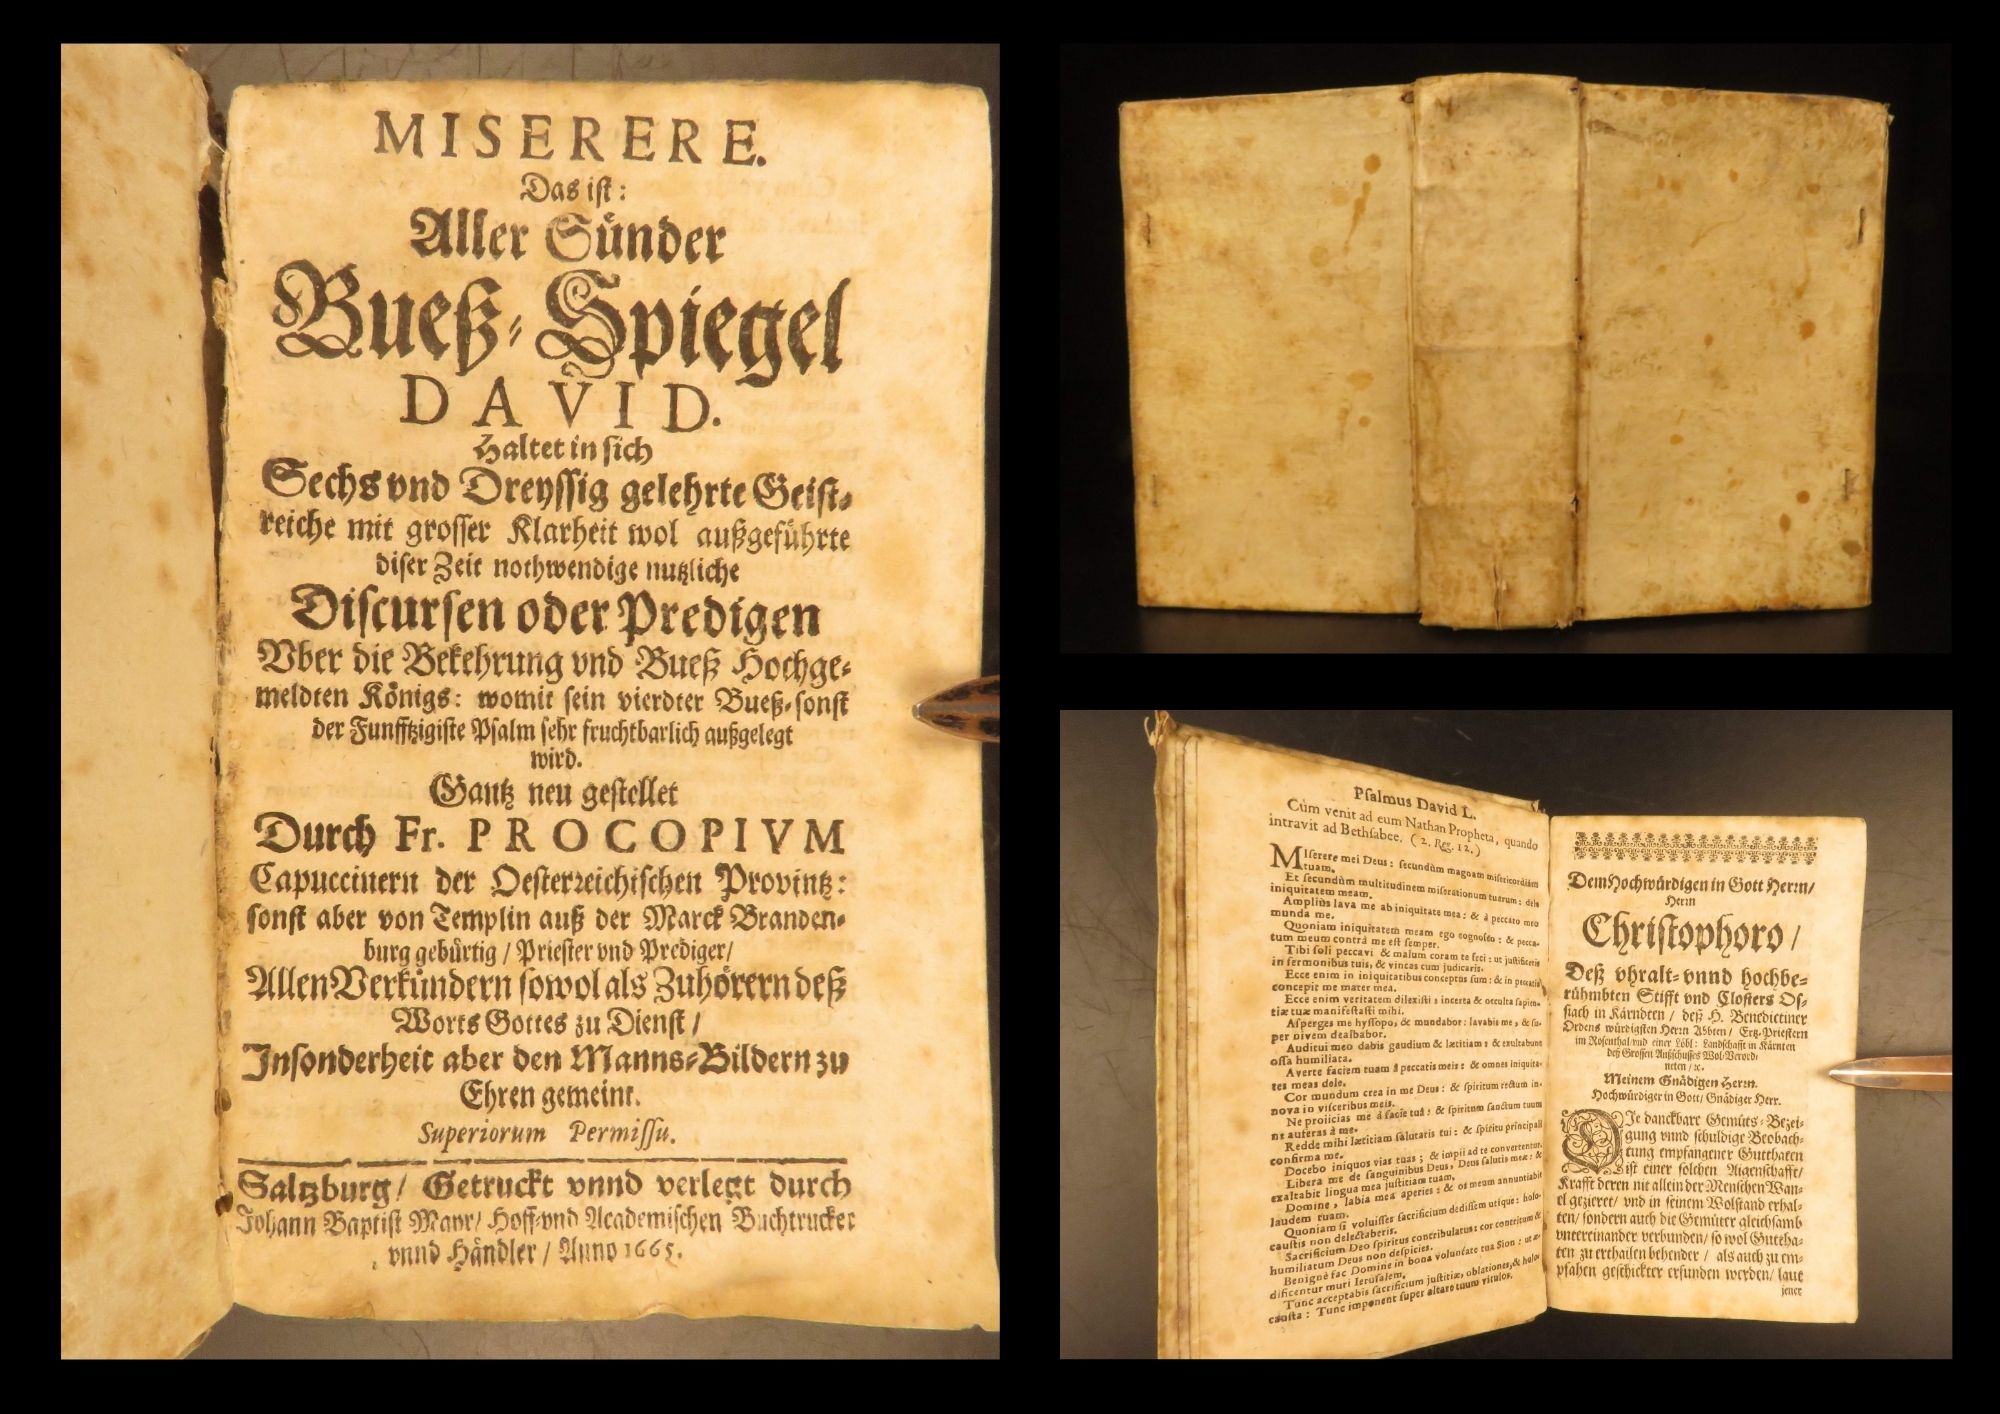 MISERERE.
Das ist:
Aller Sünder
Bueß-Spiegel
DAVID.
Haltet in sich
Sechs vnd Dreyssig gelehrte Geist-
reiche mit grosser Klarheit wol außgeführte
diser Zeit nothwendige nutzliche
Discursen oder Predigen
Vber die Bekehrung vnd Bueß Hochge-
meldten Königs: womit sein vierdter Bueß-sonst
der Funfftzigiste Psalm sehr fruchtbarlich außgelegt
wird.
Gantz neu gestellet
Durch Fr. PROCOPIVM
Capuccinern der Oesterreichischen Provintz:
sonst aber von Templin auß der Marck Branden-
burg gebürtig / Priester vnd Prediger /
Allen Verkündern sowol als Zuhörern deß
Worts Gottes zu Dienst /
Insonderheit aber den Manns-Bildern zu
Ehren gemeint.
Superiorum Permissu.
Saltzburg / Getruckt vnnd verlegt durch
Johann Baptist Mayr / Hoff-vnd Academischen Buchtrucker
vnnd Händler / Anno 1665.
Psalmus David L.
Cùm venit ad eum Nathan Propheta, quando
intravit ad Bethsabee. (2. Reg. 12.)
MIserere mei Deus: secundùm magnam misericordiam
tuam.
Et secundùm multitudinem miserationum tuarum: dele
iniquitatem meam.
Ampliùs lava me ab iniquitate mea: & à peccato meo
munda me.
Quoniam iniquitatem meam ego cognosco: & pecca-
tum meum contrà me est semper.
Tibi soli peccavi & malum coram te feci: ut justificeris
in sermonibus tuis, & vincas cum judicaris.
Ecce enim in iniquitatibus conceptus sum: & in peccatis
concepit me mater mea.
Ecce enim veritatem dilexisti: incerta & occulta sapien-
tiæ tuæ manifestasti mihi.
Asperges me hyssopo, & mundabor: lavabis me, & su-
per nivem dealbabor.
Auditui meo dabis gaudium & lætitiam: & exultabunt
ossa humiliata.
Averte faciem tuam à peccatis meis: & omnes iniquita-
tes meas dele.
Cor mundum crea in me Deus: & spiritum rectum in-
nova in visceribus meis.
Ne proiicias me à facie tuâ: & spiritum sanctum tuum
ne auferas à me.
Redde mihi lætitiam salutaris tui: & spiritu principali
confirma me.
Docebo iniquos vias tuas; & impii ad te convertentur.
Libera me de sanguinibus Deus, Deus salutis meæ: &
exaltabit lingua mea justitiam tuam.
Domine, labia mea aperies: & os meum annuntiabit
laudem tuam.
Quoniam si voluisses sacrificium dedissem utique: holo-
caustis non delectaberis.
Sacrificium Deo spiritus contribulatus: cor contritum &
humiliatum Deus non despicies.
Benignè fac Domine in bona voluntate tua Sion: ut æ-
dificentur muri Ierusalem.
Tunc acceptabis sacrificium justitiæ, oblationes, & holo-
causta: Tunc imponent super altare tuum vitulos.
Dem Hochwürdigen in Gott Herrn /
Herrn
Christophoro /
Deß vhralt- vnnd hochbe-
rühmbten Stifft vnd Closters Os-
siach in Kärndten / deß H. Benedictiner
Ordens würdigsten Herrn Abbten / Ertz-Priestern
im Rosenthal vnd einer Löbl: Landschafft in Kärnten
deß Grossen Außschusses Wol-Verord-
neten / ꝛc.
Meinem Gnädigen Herrn.
Hochwürdiger in Gott / Gnädiger Herr.
DIe danckbare Gemüts-Bezei-
gung vnnd schuldige Beobach-
tung empfangener Gutthaten
ist einer solchen Aigenschafft /
Krafft deren nit allein der Menschen Wan-
el gezieret / vnd in seinem Wolstand erhal-
ten / sondern auch die Gemüter gleichsamb
vntereinander verbunden / so wol Guttha-
ten zu erthailen behender / als auch zu em-
pfahen geschickter erfunden werden / laut
jener